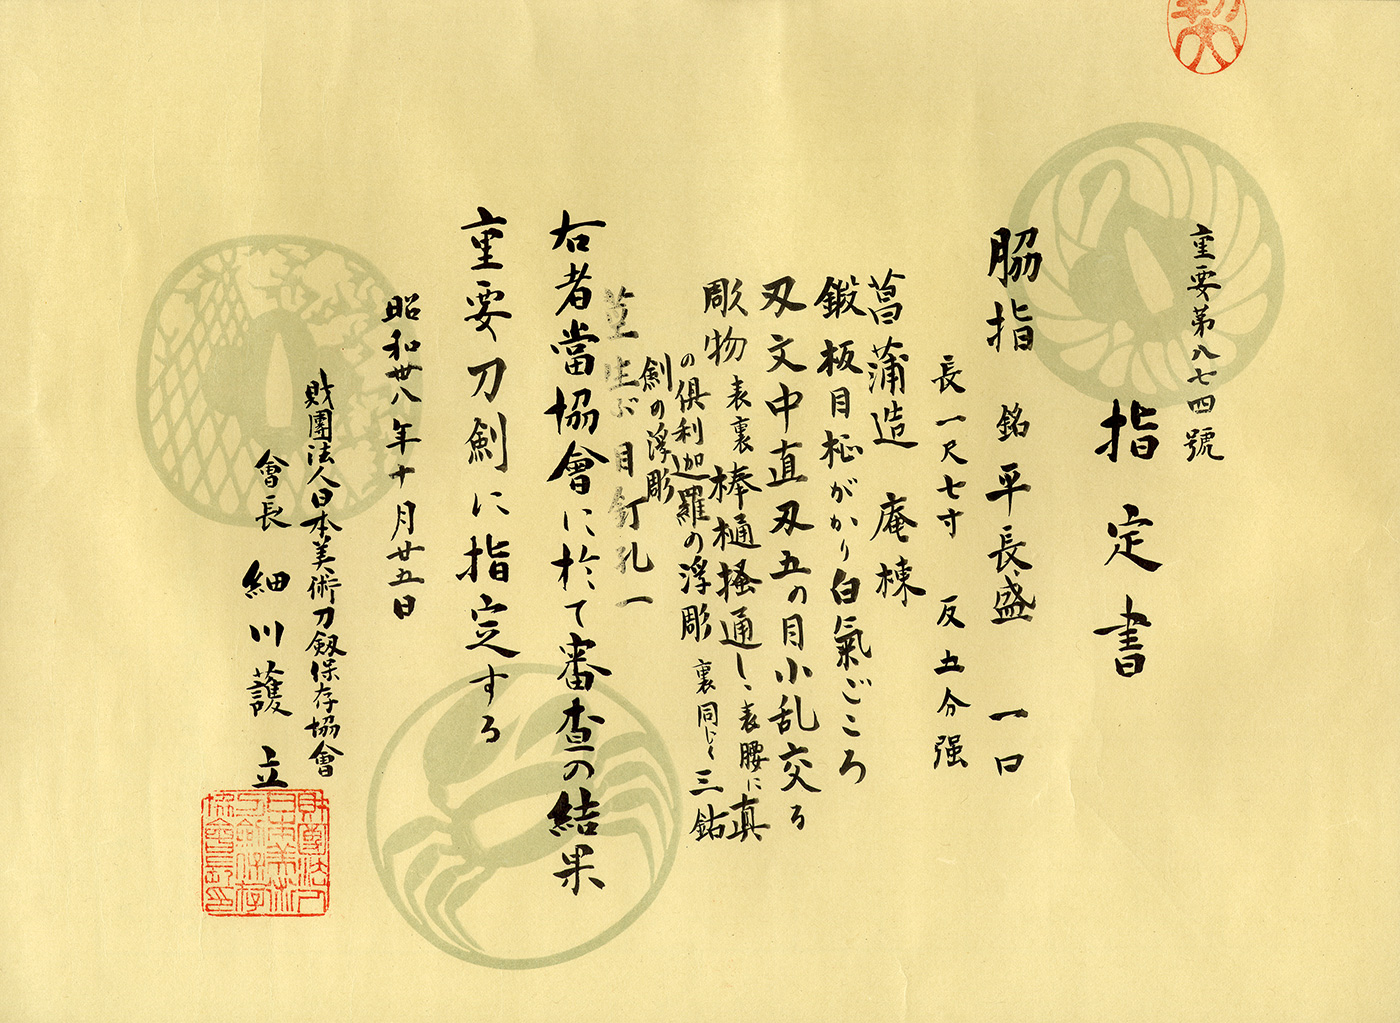 重要第八七四號
指定書
脇指 銘 平長盛 一口
長一尺七寸 反五分强
菖蒲造 庵棟
鍛板目柾がかり白氣ごころ
刃文中直刃五の目小乱交る
彫物 表裏棒樋搔通し、表腰に真
の倶利迦羅の浮彫 裏同じく三鈷
劍の浮彫
茎生ぶ 目釘孔一
右者當協會に於て審査の結果
重要刀劍に指定する
昭和卅八年十月廿五日
財團法人日本美術刀劔保存協會
會長 細川護立
財團法人
日本美術
刀劍保存
協會長印